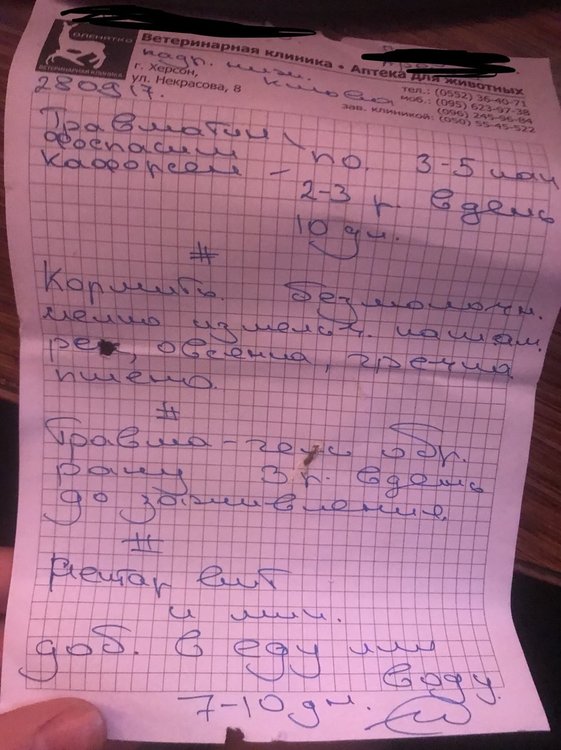 ОЛЕНЯТКО
ВЕТЕРИНАРНАЯ КЛИНИКА
Ветеринарная клиника • Аптека для животных
г. Херсон,
ул. Некрасова, 8
тел.: (0552) 36-40-71
моб.: (095) 623-97-38
(096) 245-96-84
зав. клиникой: (050) 55-45-522
надр. ниж.
280917.
Травматин
фоспасим
Кафорсен — по. 3-5 кап
2-3 р. в день
10 дн.
#
Кормить безмолочн.
мелко измельч. кашам.
рис, овсянка, гречка
пшено.
#
Травма-гель обр.
рану 3 р. в день
до заживления.
#
вит
и мин.
доб. в еду или
воду.
7-10 дн.